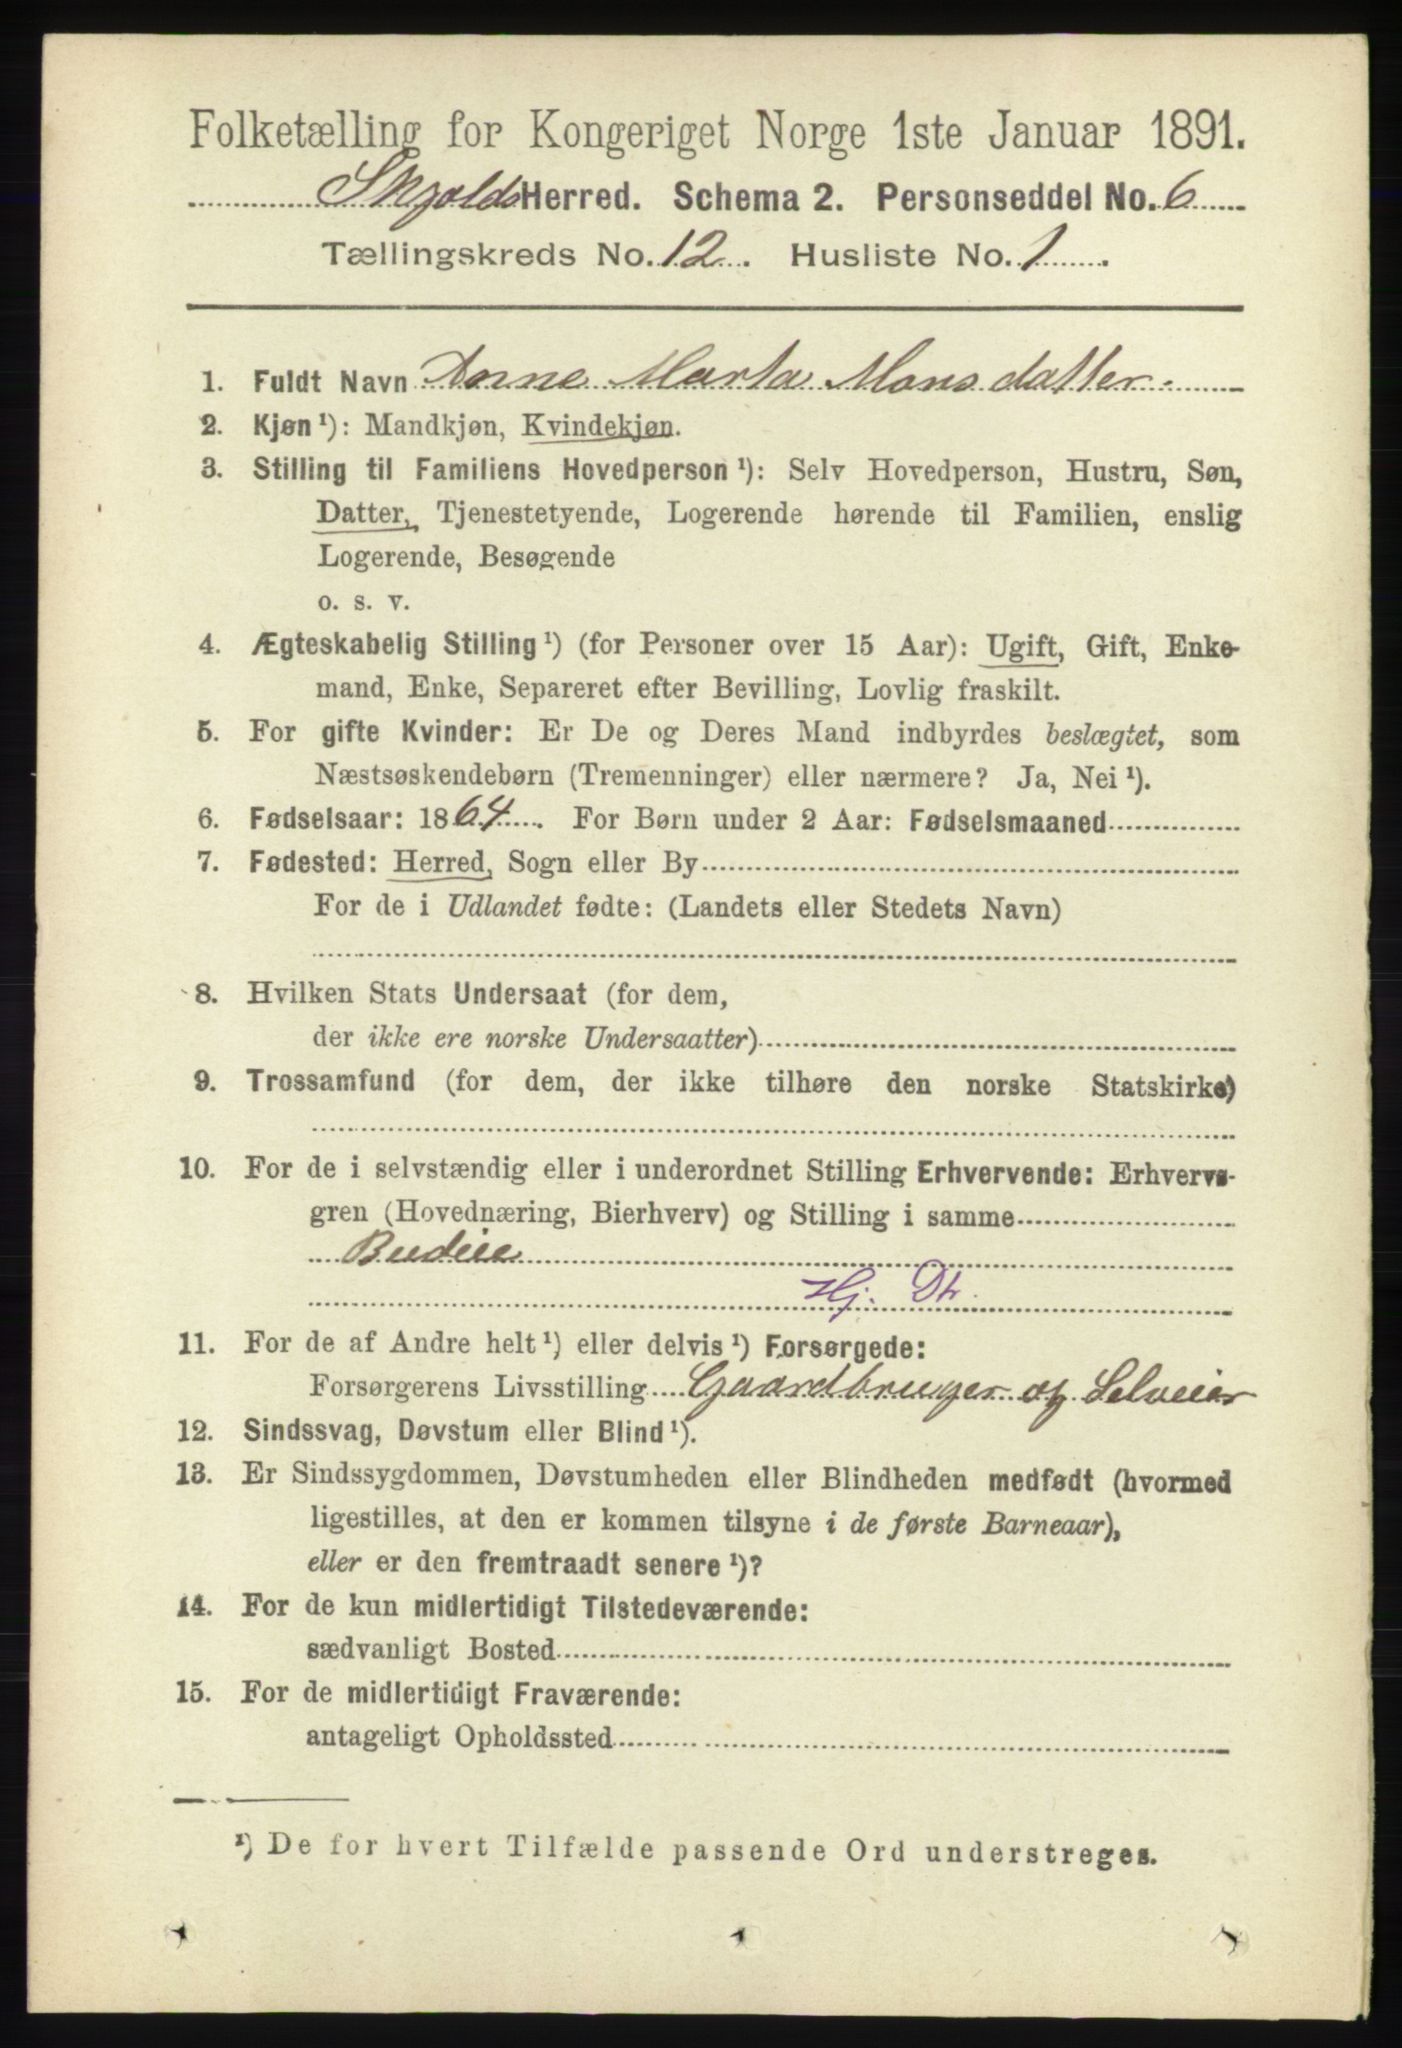 Folketælling for Kongeriget Norge 1ste Januar 1891.
Skjolds Herred. Schema 2. Personseddel No. 6
Tællingskreds No. 12. Husliste No. 1.
1. Fuldt Navn Anne Marta Monsdatter.
2. Kjøn ¹): Mandkjøn, Kvindekjøn.
3. Stilling til Familiens Hovedperson ¹): Selv Hovedperson, Hustru, Søn,
Datter, Tjenestetyende, Logerende hørende til Familien, enslig
Logerende, Besøgende
o. s. v.
4. Ægteskabelig Stilling ¹) (for Personer over 15 Aar): Ugift, Gift, Enke-
mand, Enke, Separeret efter Bevilling, Lovlig fraskilt.
5. For gifte Kvinder: Er De og Deres Mand indbyrdes beslægtet, som
Næstsøskendebørn (Tremenninger) eller nærmere? Ja, Nei ¹).
6. Fødselsaar: 1864. For Børn under 2 Aar: Fødselsmaaned
7. Fødested: Herred, Sogn eller By
For de i Udlandet fødte: (Landets eller Stedets Navn)
8. Hvilken Stats Undersaat (for dem,
der ikke ere norske Undersaatter)
9. Trossamfund (for dem, der ikke tilhøre den norske Statskirke)
10. For de i selvstændig eller i underordnet Stilling Erhvervende: Erhvervs-
gren (Hovednæring, Bierhverv) og Stilling i samme
Budeie
Hj. Dtr.
11. For de af Andre helt ¹) eller delvis ¹) Forsørgede:
Forsørgerens Livsstilling Gaardbruger og Selveier
12. Sindssvag, Døvstum eller Blind ¹).
13. Er Sindssygdommen, Døvstumheden eller Blindheden medfødt (hvormed
ligestilles, at den er kommen tilsyne i de første Barneaar),
eller er den fremtraadt senere ¹)?
14. For de kun midlertidigt Tilstedeværende:
sædvanligt Bosted
15. For de midlertidigt Fraværende:
antageligt Opholdssted
¹) De for hvert Tilfælde passende Ord understreges.